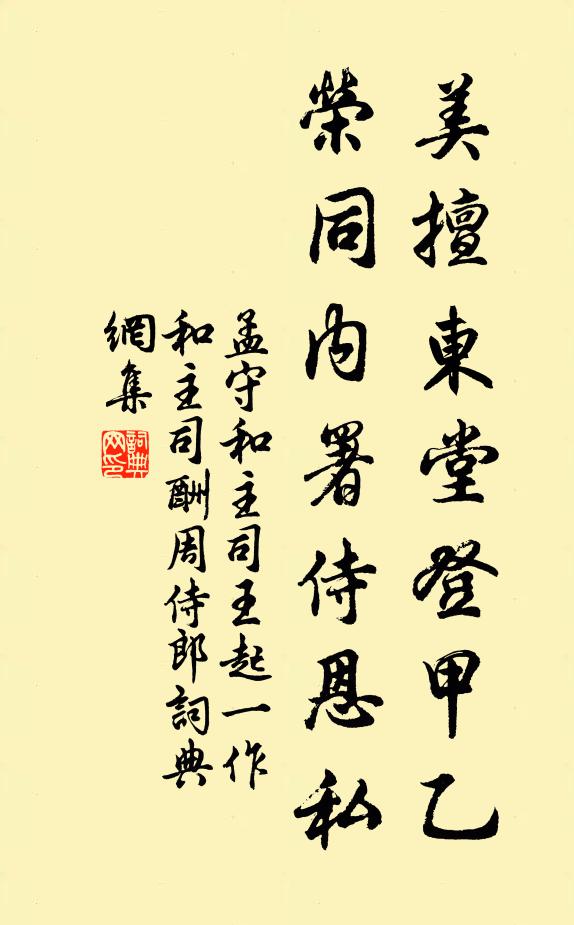 美擅東堂登甲乙
榮同內署侍恩私
孟守和主司王起一作
和主司酬周侍郎詞典
網集
詞典網印